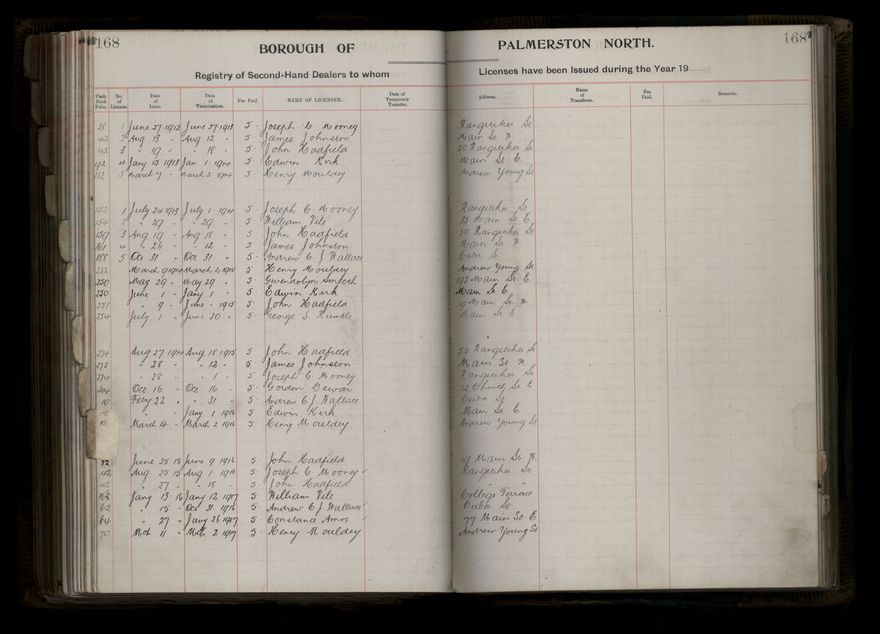 168
BOROUGH OF PALMERSTON NORTH.
168
Registry of Second-Hand Dealers to whom Licenses have been Issued during the Year 19
Cash Book Folio. No. of License. Date of Issue. Date of Termination. Fee Paid. NAME OF LICENSEE. Date of Temporary Transfer. Address. Name of Transferee. Fee Paid. Remarks.
28 1 June 27 1912 June 27 1913 5 - Joseph C. Mooney Rangitikei St
42 2 Aug 13 " Aug 12 " 5 - James Johnston Main St W
42 3 " 19 " " 18 " 5 - John Hadfield 50 Rangitikei St
92 4 Jany 15 1913 Jan 1 1914 5 - Edwin Kirk Main St E
112 5 March 7 " March 2 1914 5 - Henry Mouldey Andrew Young St
152 1 July 24 1913 July 1 1914 5 - Joseph C. Mooney Rangitikei St
154 2 " 29 " " 29 " 5 - William Vile 35 Main St E
159 3 Aug 19 " Aug 18 " 5 - John Hadfield 50 Rangitikei St
161 4 " 26 " " 12 " 5 - James Johnston Main St W
188 5 Oct 31 " Oct 31 " 5 - Andrew C J Wallace Cuba St
232 March 9 1914 March 2 1915 5 - Henry Mouldey Andrew Young St
250 May 29 " May 29 " 5 - Gwendolyn 195 Main St E
250 June 1 " Jany 1 " 5 - Edwin Kirk Main St E.
251 " 9 " June 1915 5 - John Hadfield 19 Main St W
254 July 1 " June 30 " 5 - George S. Rumble Main St E
274 Aug 27 1914 Aug 18 1915 5 John Hadfield 50 Rangitikei St
275 " 28 " " 12 " 5 - James Johnston Main St W
274 " 28 " " 1 " 5 Joseph C. Mooney Rangitikei St
204 Oct 16 " Oct 16 " 5 - Gordon Dewar 12 Church St E
10 Feby 22 " " 31 5 - Andrew C J Wallace Cuba St
10 " " Jany 1 1916 5 - Edwin Kirk Main St E
March 4 " March 2 1916 5 - Henry Mouldey Andrew Young St
32 June 25 15 June 9 1916 5 - John Hadfield 19 Main St W.
42 Aug 25 15 Aug 1 1916 5 - Joseph C. Mooney Rangitikei St
42 " 27 " " 18 " 5 - John Hadfield " "
Jany 13 16 Jany 12 1917 5 William Vile College Terrace
62 " 15 " Dec 31 1916 5 - Andrew C J Wallace Cuba St
64 " 27 " Jany 26 1917 5 Constance Amos 77 Main St E
70 Mch 11 " Mch 2 1917 5 - Henry Mouldey Andrew Young St